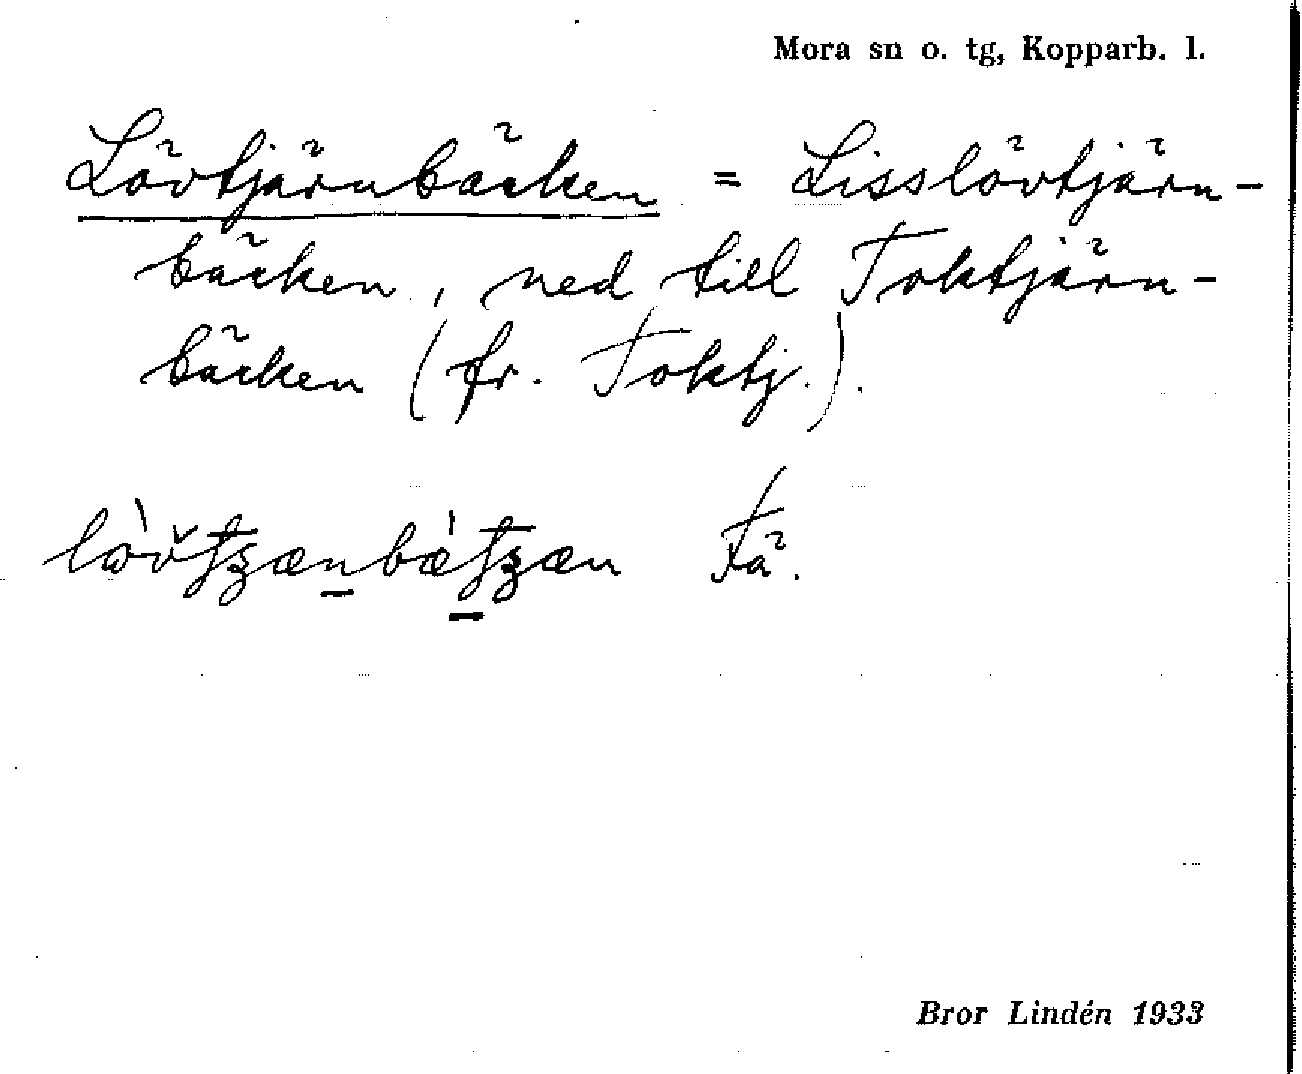 Mora sn o. tg, Kopparb. l.
Lövtjärnbäcken = Lisslövtjärn-
bäcken, ned till Toktjärn-
bäcken (fr. Toktj.).
Fä.
Bror Lindén 1933